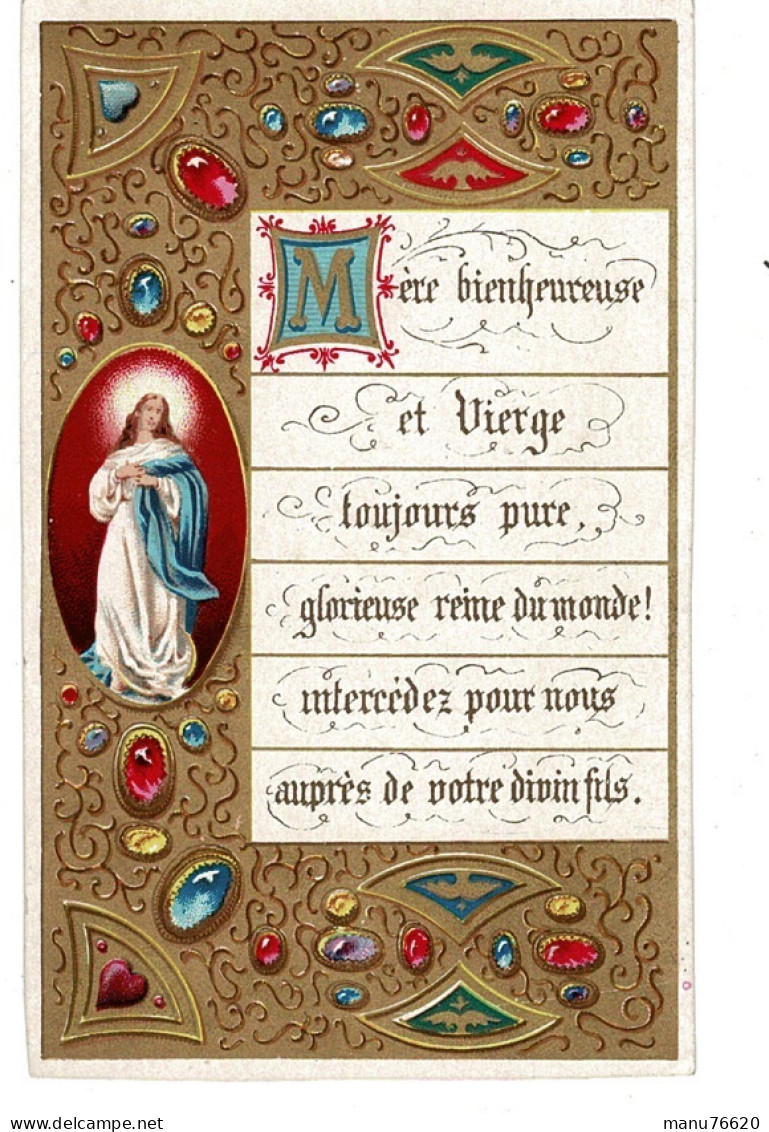 Mère bienheureuse
et Vierge
toujours pure,
glorieuse reine du monde!
intercédez pour nous
auprès de votre divin fils.
manu76620